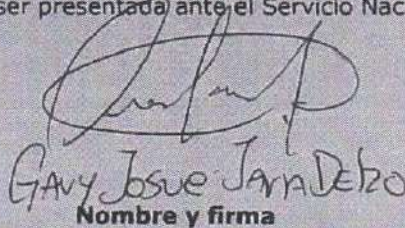 ser presentada ante el Servicio Nac
GAVY JOSUE JARA DELZO
Nombre y firma